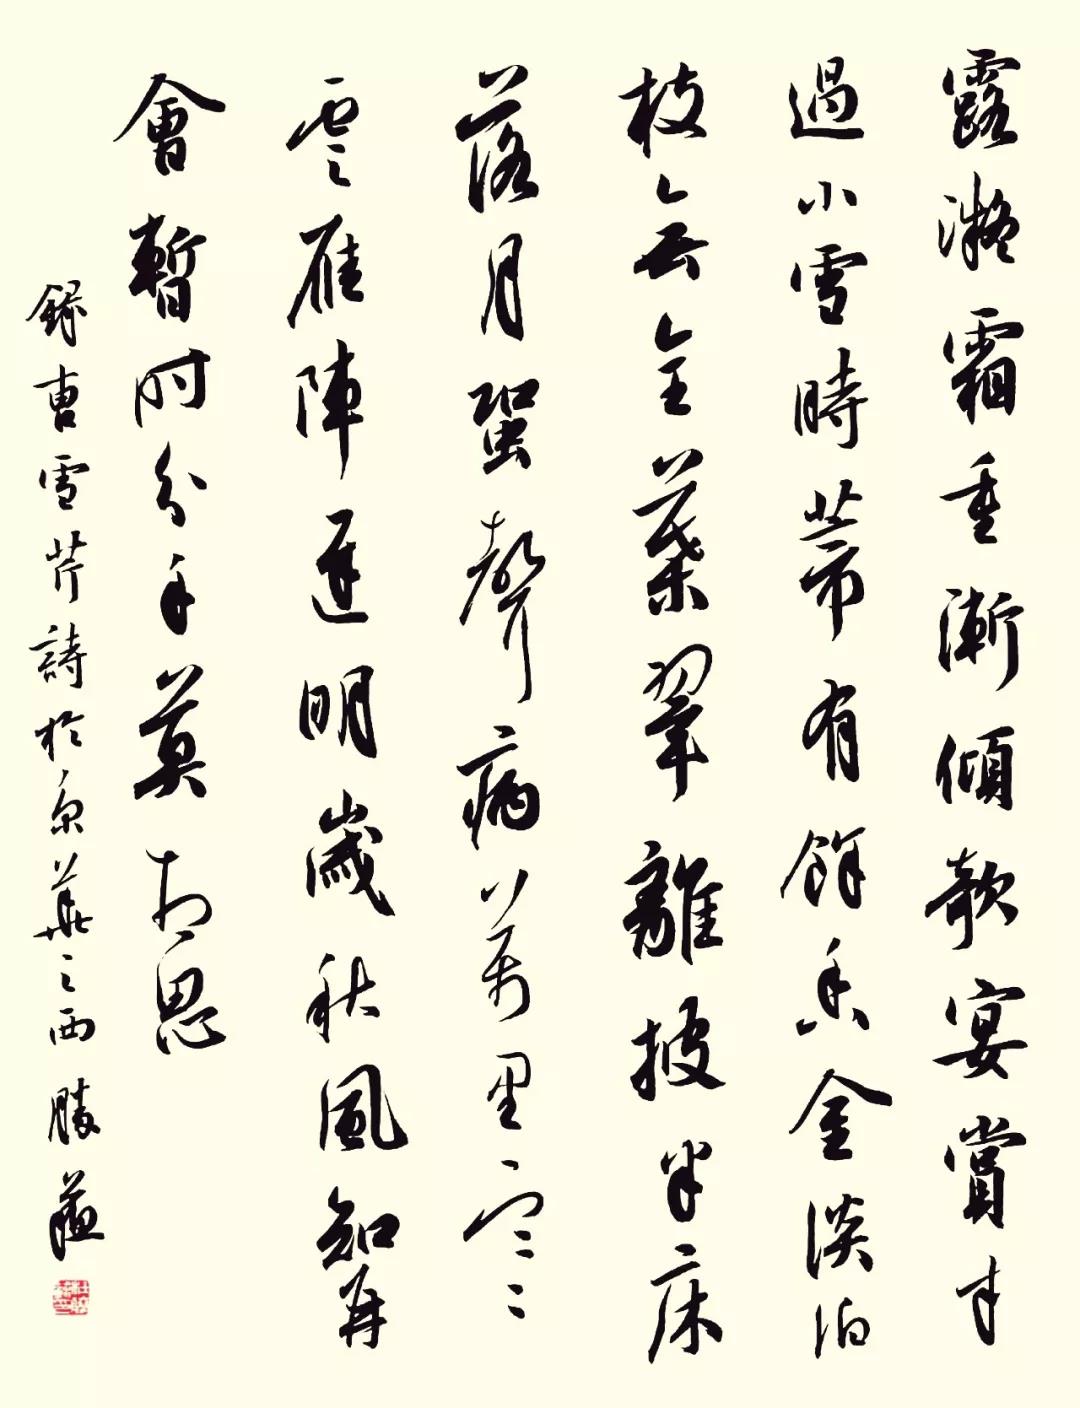 露凝霜重漸傾欹宴賞才
過小雪時蒂有餘香金淡泊
枝無全葉翠離披半床
落月蛩聲病萬里寒
雲雁陣遲明歲秋風知再
會暫时分手莫相思
錄曹雪芹詩於京華之西